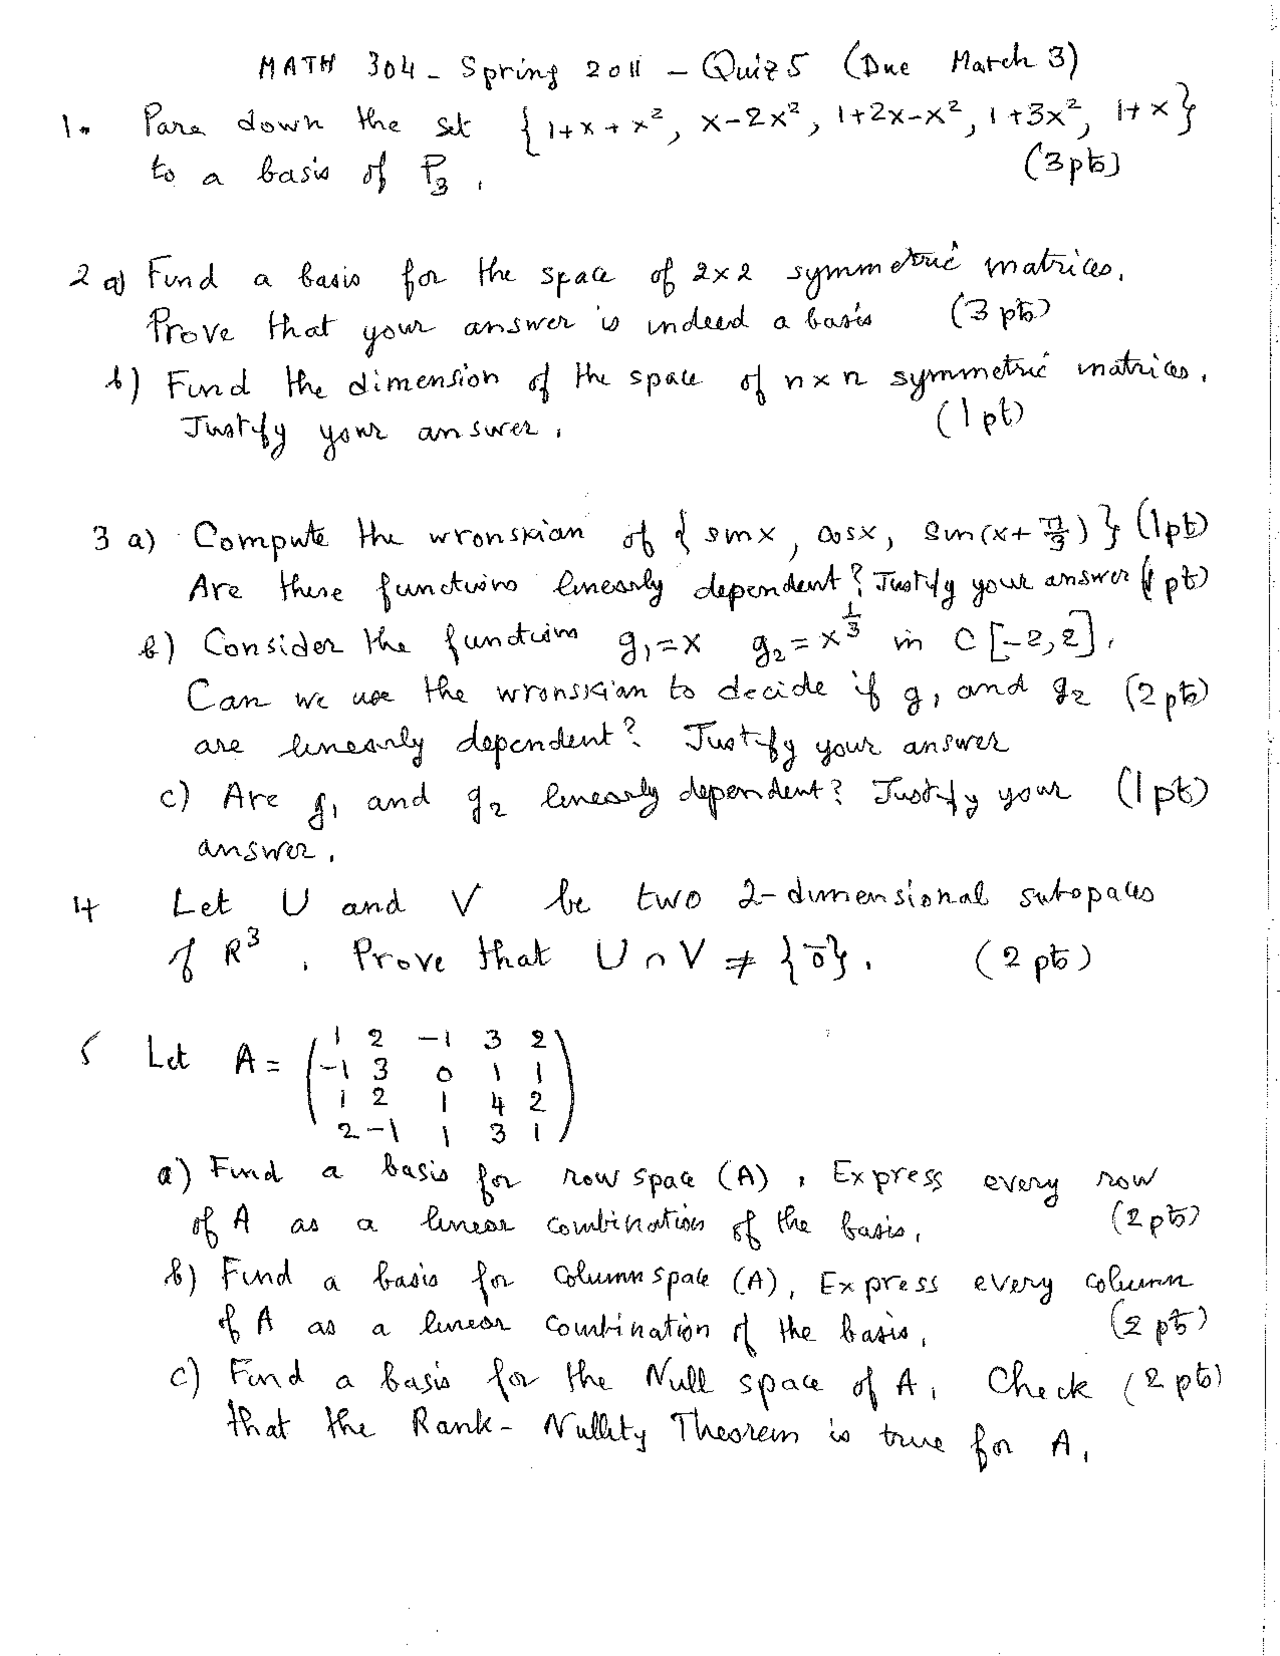 MATH 304 - Spring 2011 - Quiz 5 (Due March 3)
1. Pare down the set {1+x+x², x-2x², 1+2x-x², 1+3x², 1+x}
to a basis of P₃. (3pts)
2 a) Find a basis for the space of 2x2 symmetric matrices.
Prove that your answer is indeed a basis (3 pts)
b) Find the dimension of the space of nxn symmetric matrices.
Justify your answer. (1 pt)
3 a) Compute the wronskian of {sinx, cosx, sin(x+π/3)} (1pt)
Are these functions linearly dependent? Justify your answer (1 pt)
b) Consider the functions g₁=x g₂=x^{1/3} in C[-2,2].
Can we use the wronskian to decide if g₁ and g₂ (2 pts)
are linearly dependent? Justify your answer
c) Are g₁ and g₂ linearly dependent? Justify your (1 pt)
answer.
4 Let U and V be two 2-dimensional subspaces
of R³. Prove that U∩V ≠ {0̄}. (2 pts)
5 Let A = ( 1 2 -1 3 2
-1 3 0 1 1
1 2 1 4 2
2 -1 1 3 1 )
a) Find a basis for row space (A). Express every row
of A as a linear combination of the basis. (2 pts)
b) Find a basis for Column space (A). Express every column
of A as a linear combination of the basis. (2 pts)
c) Find a basis for the Null space of A. Check (2 pts)
that the Rank-Nullity Theorem is true for A.